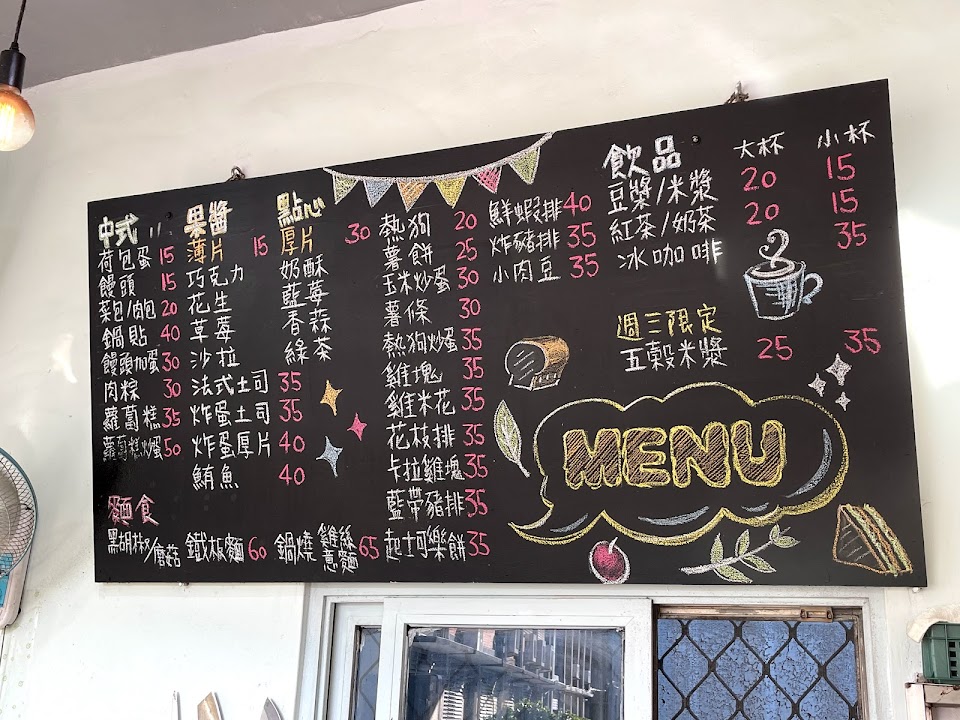 中式
荷包蛋 15
饅頭 15
菜包/肉包 20
鍋貼 40
饅頭加蛋 30
肉粽 30
蘿蔔糕 35
蘿蔔糕炒蛋 50
果醬
薄片 15
巧克力
花生
草莓
沙拉
法式土司 35
炸蛋土司 35
炸蛋厚片 40
鮪魚 40
點心
厚片 30
奶酥
藍莓
香蒜
綠茶
熱狗 20
薯餅 25
玉米炒蛋 30
薯條 30
熱狗炒蛋 35
雞塊 35
雞米花 35
花枝排 35
卡拉雞塊 35
藍帶豬排 35
起司樂餅 35
鮮蝦排 40
炸豬排 35
小肉豆 35
飲品 大杯 小杯
豆漿/米漿 20 15
紅茶/奶茶 20 15
冰咖啡 35
週三限定
五穀米漿 25 35
MENU
麵食
黑胡椒/蘑菇 鐵板麵 60
鍋燒 雞絲意麵 65